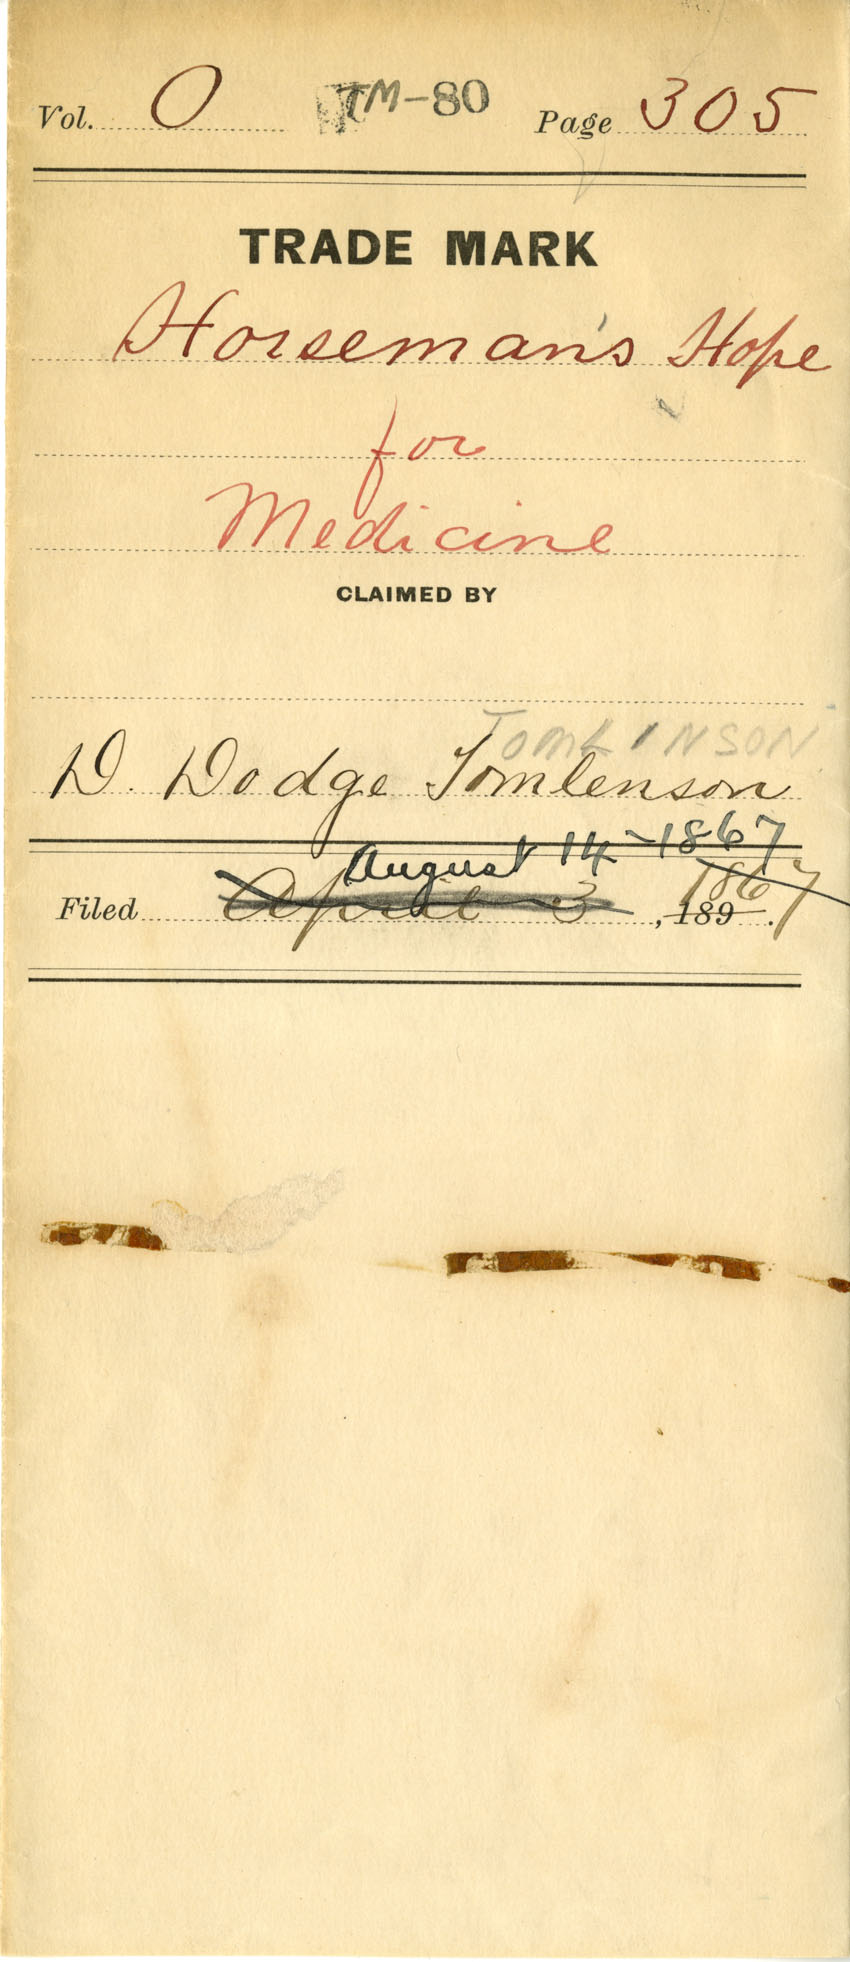 Vol. O TM-80 Page 305
TRADE MARK
Horseman's Hope
for
Medicine
CLAIMED BY
TOMKINSON
D. Dodge Tomlenson
August 14-1867
Filed April 3, 189 . 1867